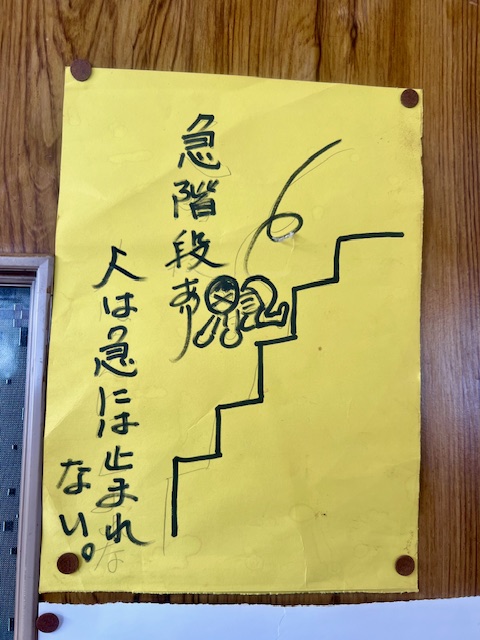 急階段あり
人は急には止まれ
ない。